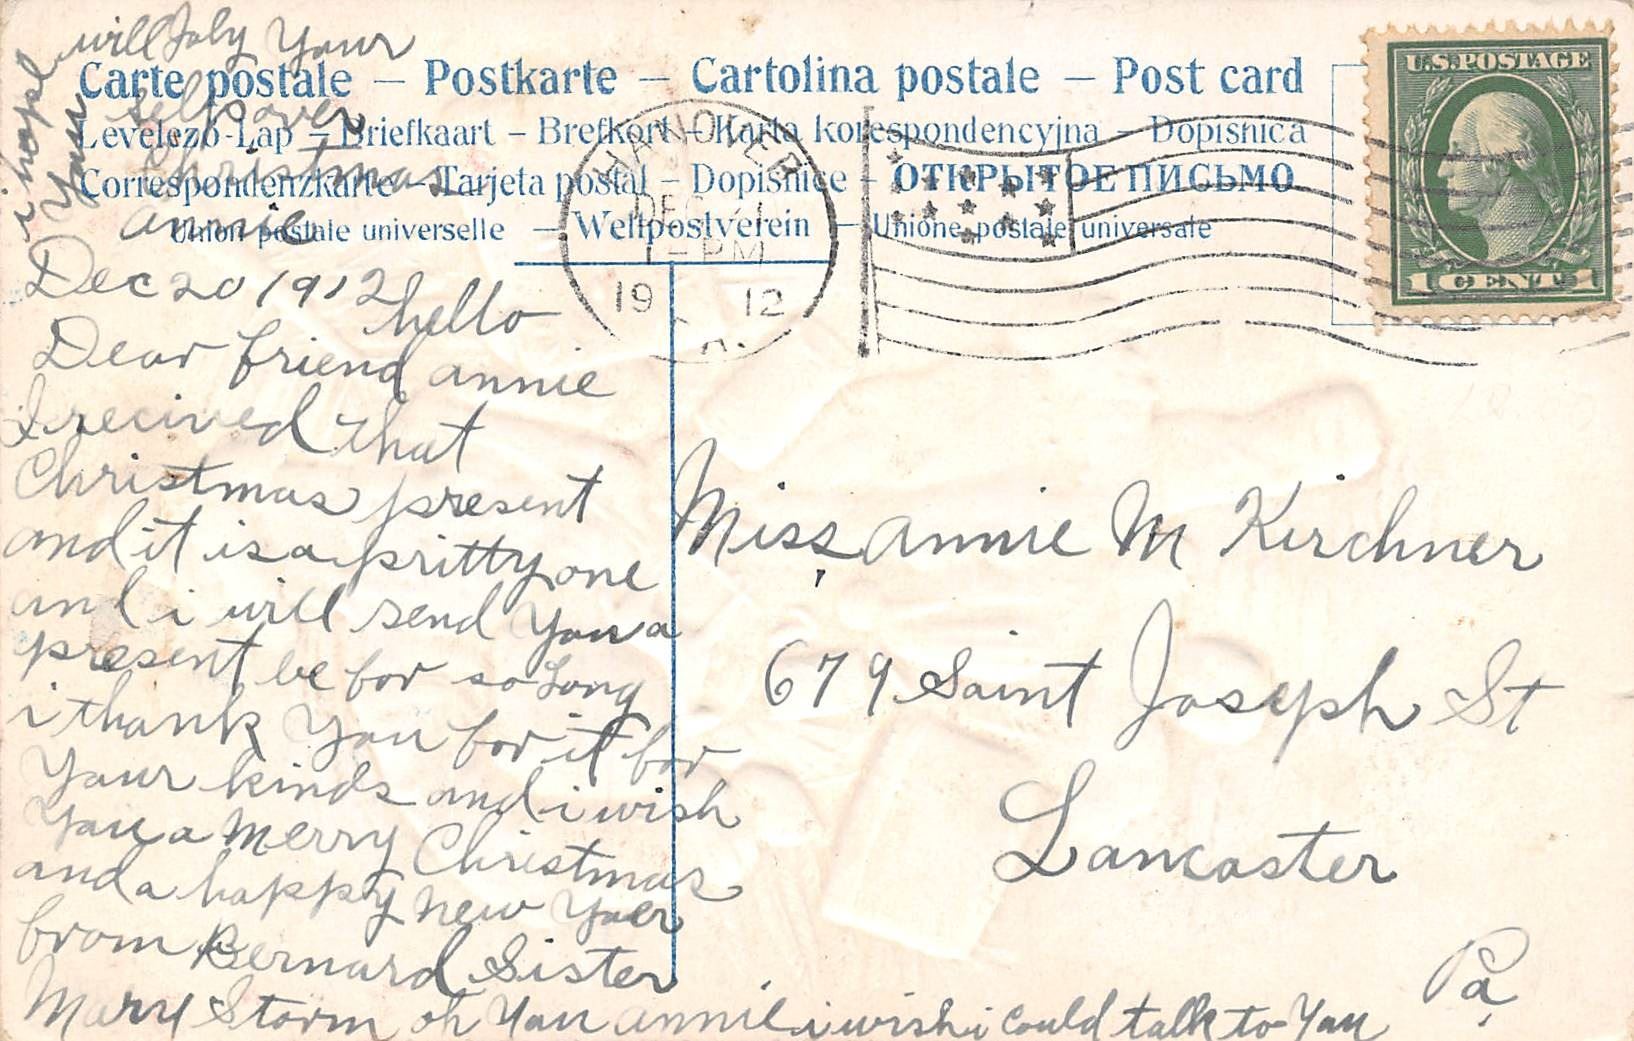 Carte postale — Postkarte — Cartolina postale — Post card
Levelező-Lap – Briefkaart – Brefkort – Karta korespondencyjna – Dopisnica
Correspondenzkarte – Tarjeta postal – Dopisnice – ОТКРЫТОЕ ПИСЬМО
Union postale universelle — Weltpostverein — Unione postale universale
U.S. POSTAGE
1 CENT 1
HANOVER
DEC
1 - PM
19 12
PA.
Dec 20 1912 hello
Dear friend annie
I recived that
Christmas present
and it is a pritty one
and i will send you a
present be for so long
i thank you for it for
your kinds and i wish
you a merry Christmas
and a happy new yaer
from Bernard Sister
Mary Storm oh you annie i wish i could talk to you
i hope you
will joly your
self over
Christmas
annie
Miss, annie M Kirchner
679 Saint Joseph St
Lancaster
Pa,